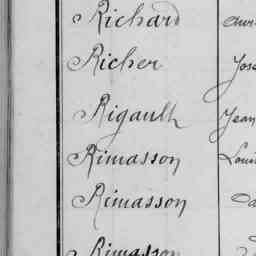 Richard
Richer Jos
Rigault Jean
Rimasson Loui
Rimasson
Rimasson